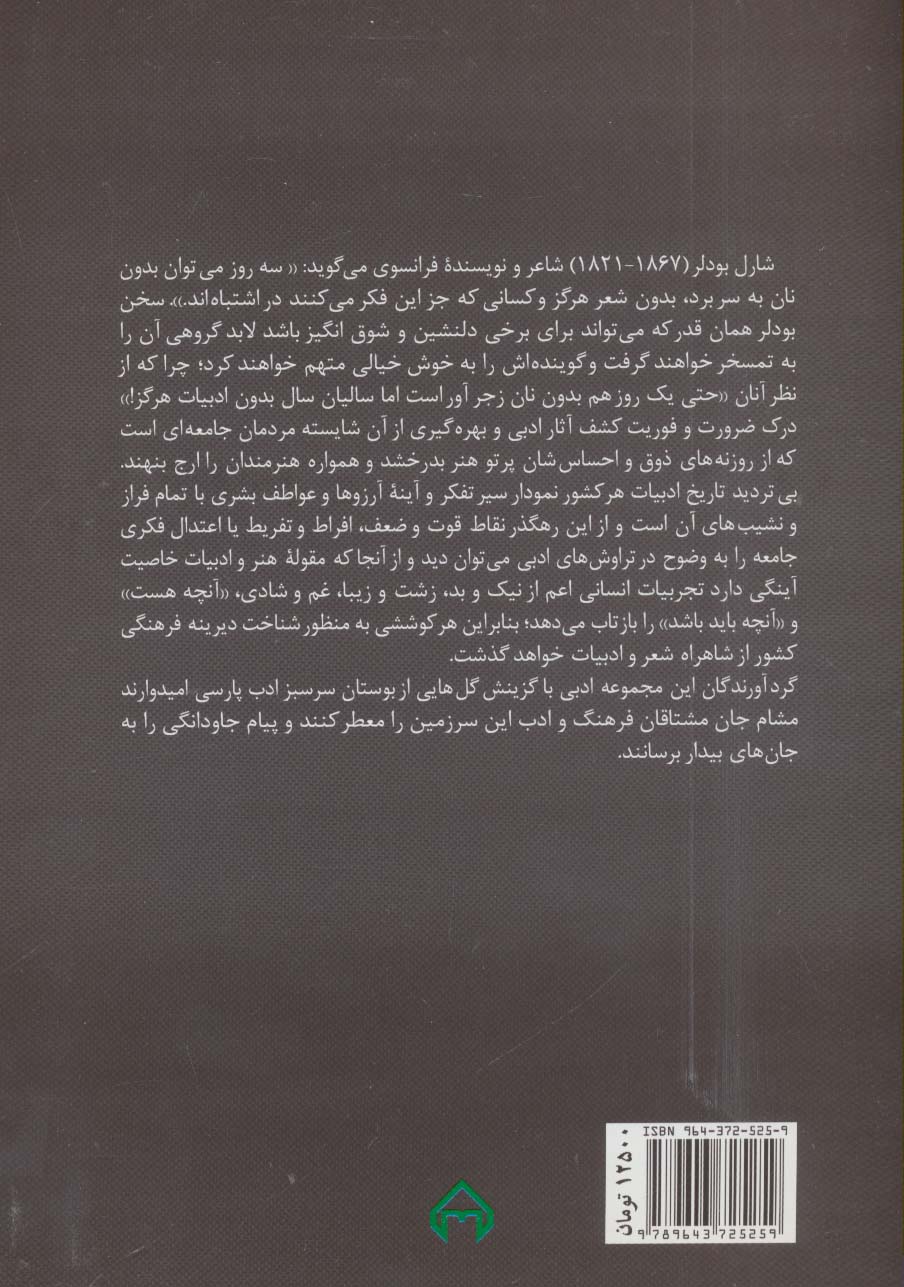 شارل بودلر (۱۸۶۷-۱۸۲۱) شاعر و نویسندهٔ فرانسوی می‌گوید: «سه روز می‌توان بدون
نان به سر برد، بدون شعر هرگز و کسانی که جز این فکر می‌کنند در اشتباه‌اند.». سخن
بودلر همان قدر که می‌تواند برای برخی دلنشین و شوق انگیز باشد لابد گروهی آن را
به تمسخر خواهند گرفت و گوینده‌اش را به خوش خیالی متهم خواهند کرد؛ چرا که از
نظر آنان «حتی یک روز هم بدون نان زجر آور است اما سالیان سال بدون ادبیات هرگز!»
درک ضرورت و فوریت کشف آثار ادبی و بهره‌گیری از آن شایسته مردمان جامعه‌ای است
که از روزنه‌های ذوق و احساس‌شان پرتو هنر بدرخشد و همواره هنرمندان را ارج بنهند.
بی‌تردید تاریخ ادبیات هر کشور نمودار سیر تفکر و آینهٔ آرزوها و عواطف بشری با تمام فراز
و نشیب‌های آن است و از این رهگذر نقاط قوت و ضعف، افراط و تفریط یا اعتدال فکری
جامعه را به وضوح در تراوش‌های ادبی می‌توان دید و از آنجا که مقولهٔ هنر و ادبیات خاصیت
آینگی دارد تجربیات انسانی اعم از نیک و بد، زشت و زیبا، غم و شادی، «آنچه هست»
و «آنچه باید باشد» را بازتاب می‌دهد؛ بنابراین هر کوششی به منظور شناخت دیرینه فرهنگی
کشور از شاهراه شعر و ادبیات خواهد گذشت.
گردآورندگان این مجموعه ادبی با گزینش گل‌هایی از بوستان سرسبز ادب پارسی امیدوارند
مشام جان مشتاقان فرهنگ و ادب این سرزمین را معطر کنند و پیام جاودانگی را به
جان‌های بیدار برسانند.
ISBN 964-372-525-9
۱۲۵۰۰ تومان
9 789643 725259